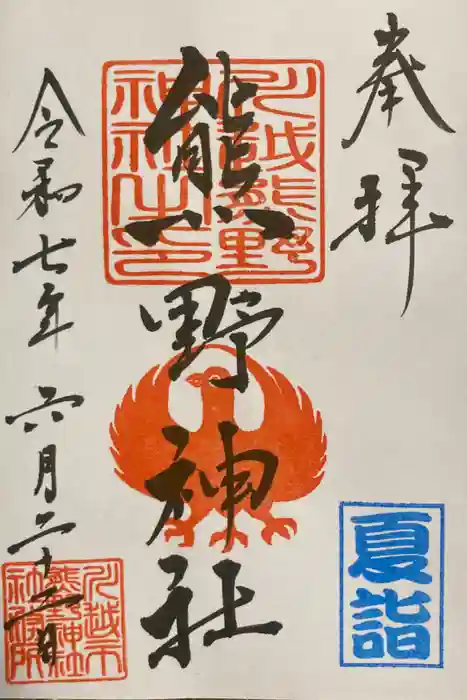 奉拝
川越熊野
神社之印
熊野神社
令和七年六月二十二日
川越市
熊野神社
社務所
夏詣